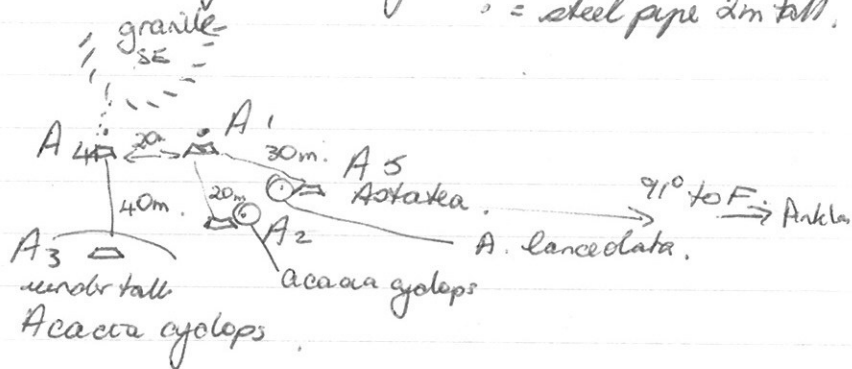 = steel pipe 2m tall.
granite
SE
A1
A4 20
30m. A5
Astatea.
91° to F.
40m. 20m
A2
A. lanceolata.
A3
under tall
Acacia cyclops
acacia cyclops